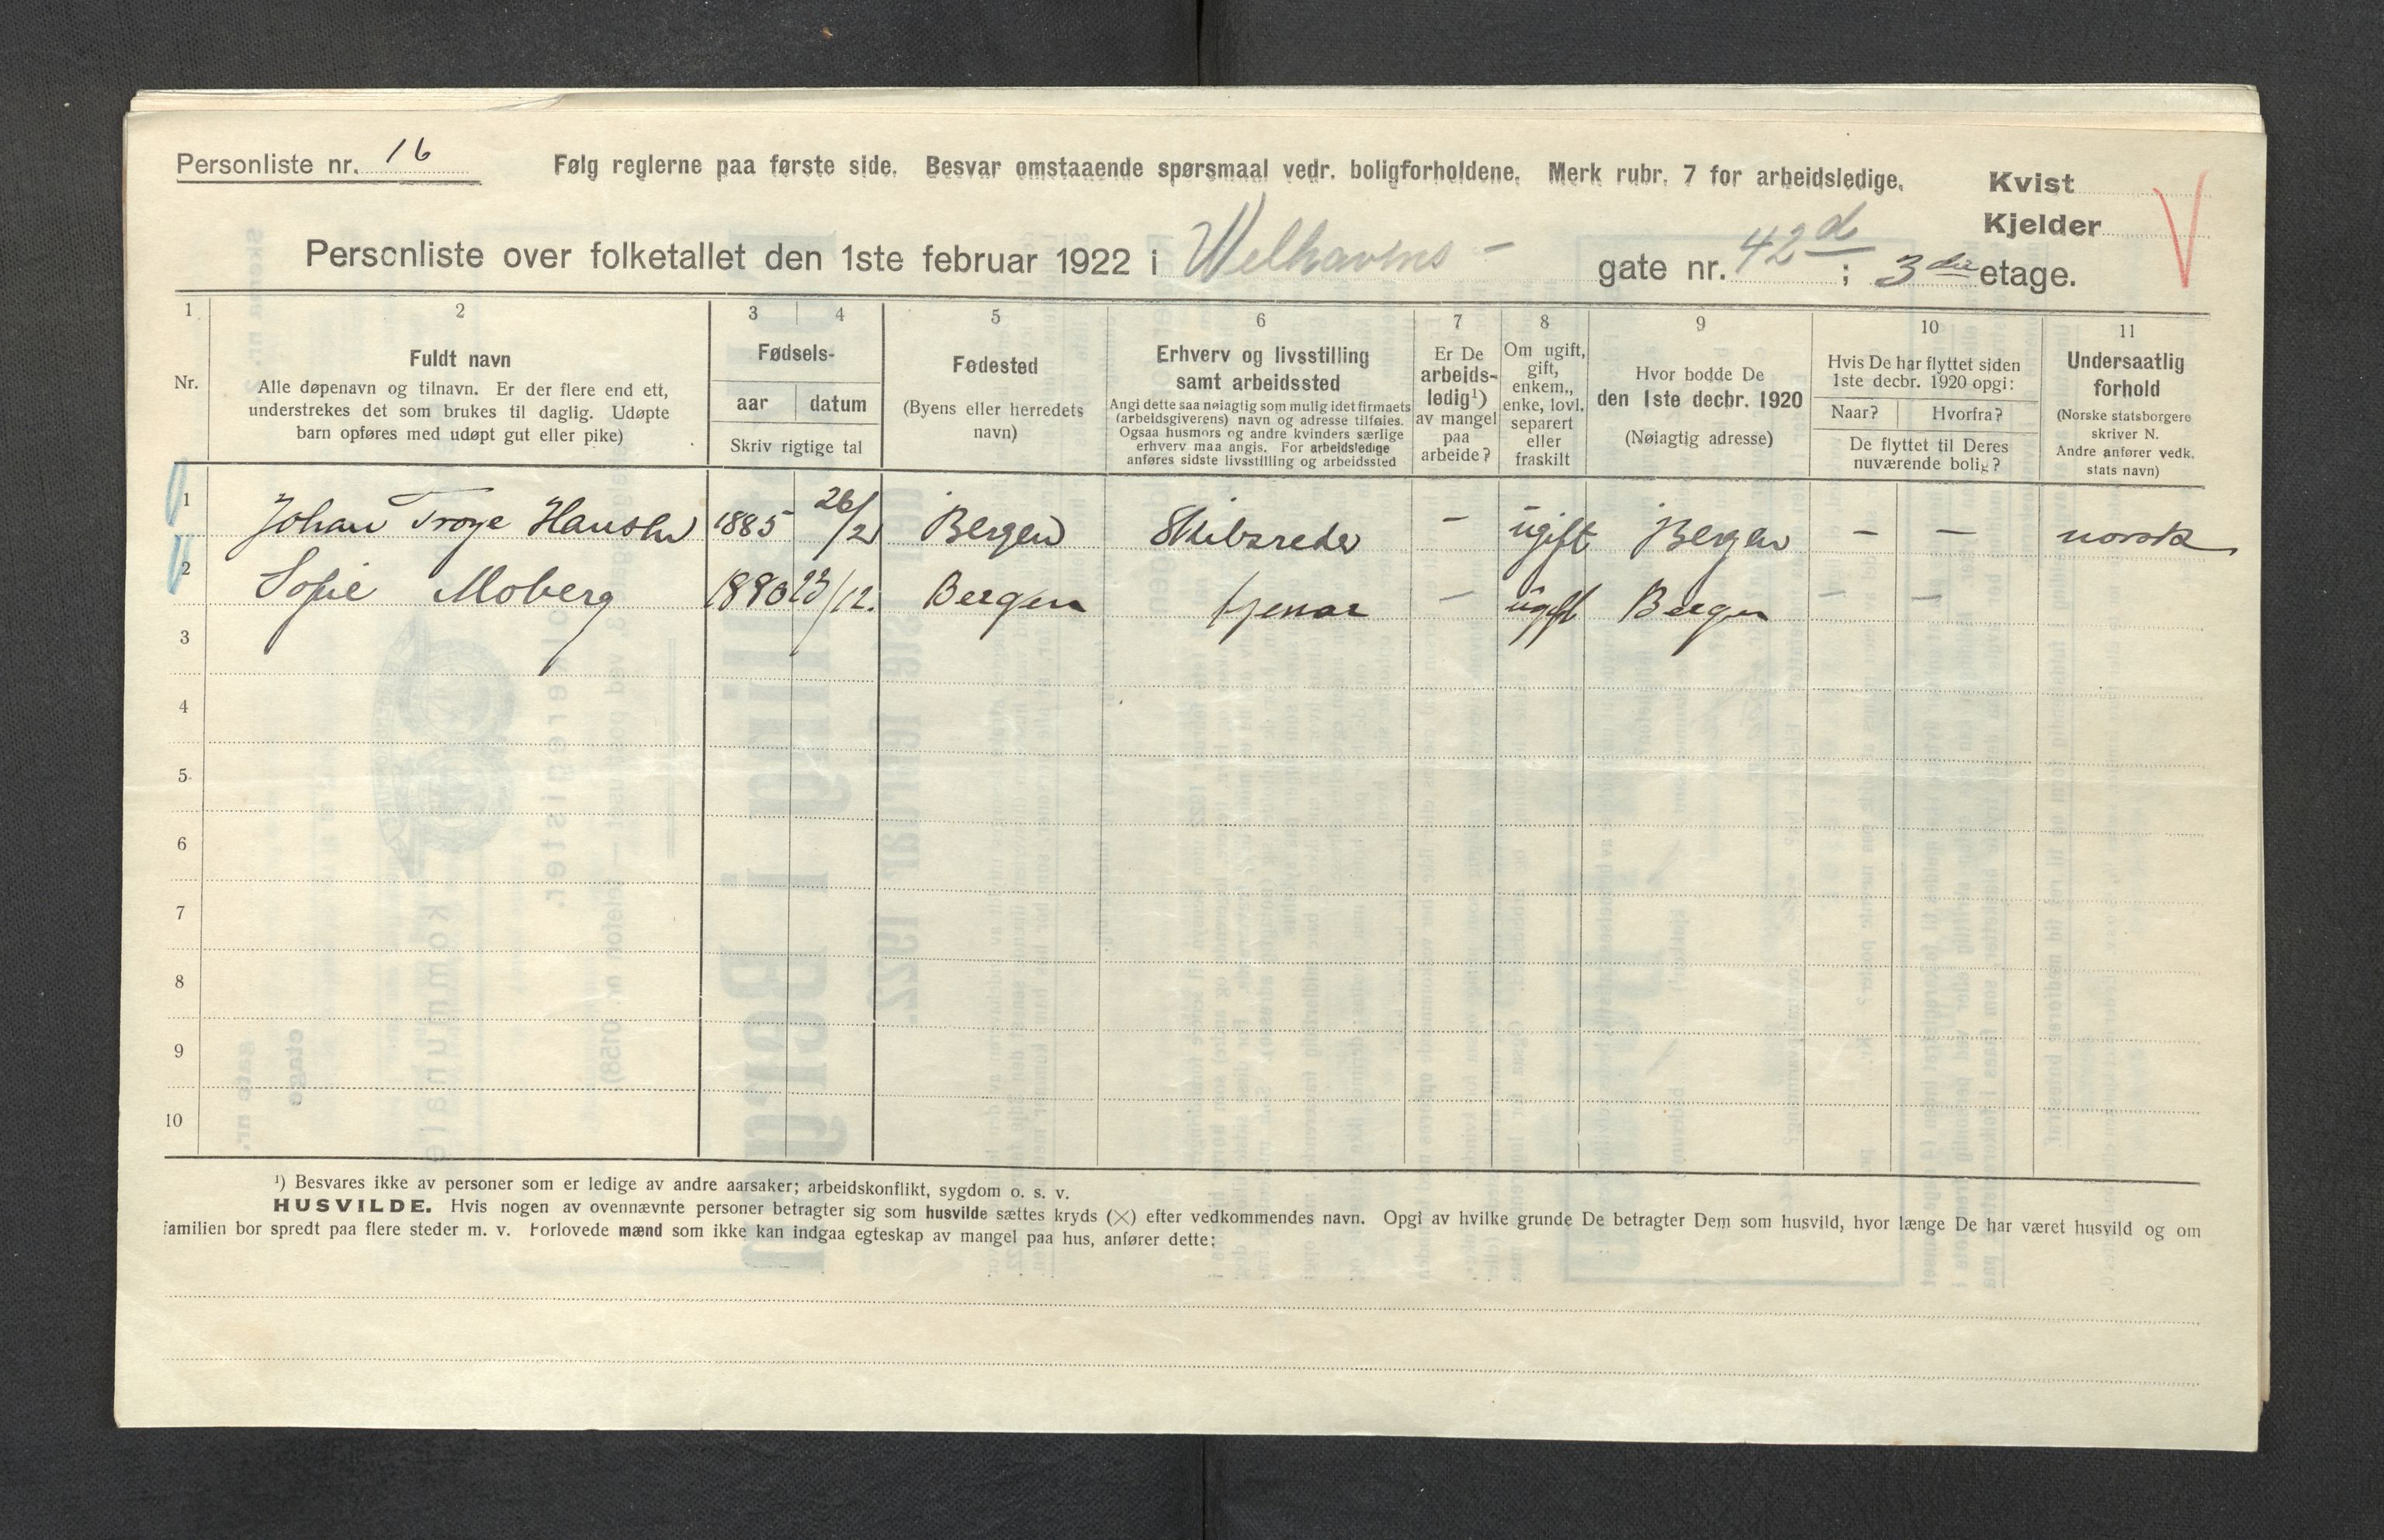 Personliste nr. 16
Følg reglerne paa første side. Besvar omstaaende spørsmaal vedr. boligforholdene. Merk rubr. 7 for arbeidsledige.
Kvist
Kjelder
Personliste over folketallet den 1ste februar 1922 i Welhavens - gate nr. 42 d ; 3 die etage.
1 2 3 4 5 6 7 8 9 10 11
Nr.
Fuldt navn
Alle døpenavn og tilnavn. Er der flere end ett,
understrekes det som brukes til daglig. Udøpte
barn opføres med udøpt gut eller pike)
Fødsels-
aar datum
Skriv rigtige tal
Fødested
(Byens eller herredets
navn)
Erhverv og livsstilling
samt arbeidssted
Angi dette saa nøiagtig som mulig idet firmaets
(arbeidsgiverens) navn og adresse tilføies.
Ogsaa husmors og andre kvinders særlige
erhverv maa angis. For arbeidsledige
anføres sidste livsstilling og arbeidssted
Er De
arbeids-
ledig¹)
av mangel
paa
arbeide?
Om ugift,
gift,
enkem.,
enke, lovl.
separert
eller
fraskilt
Hvor bodde De
den 1ste decbr. 1920
(Nøiagtig adresse)
Hvis De har flyttet siden
1ste decbr. 1920 opgi:
Naar? Hvorfra?
De flyttet til Deres
nuværende bolig?
Undersaatlig
forhold
(Norske statsborgere
skriver N.
Andre anfører vedk.
stats navn)
1 Johan Troye Hansen 1885 26/2 Bergen Skibsreder - ugift Bergen - - norsk
2 Sofie Moberg 1890 23/12. Bergen tjener - ugift Bergen - -
3
4
5
6
7
8
9
10
¹) Besvares ikke av personer som er ledige av andre aarsaker; arbeidskonflikt, sygdom o. s. v.
HUSVILDE. Hvis nogen av ovennævnte personer betragter sig som husvilde sættes kryds (×) efter vedkommendes navn. Opgi av hvilke grunde De betragter Dem som husvild, hvor længe De har været husvild og om
familien bor spredt paa flere steder m. v. Forlovede mænd som ikke kan indgaa egteskap av mangel paa hus, anfører dette: